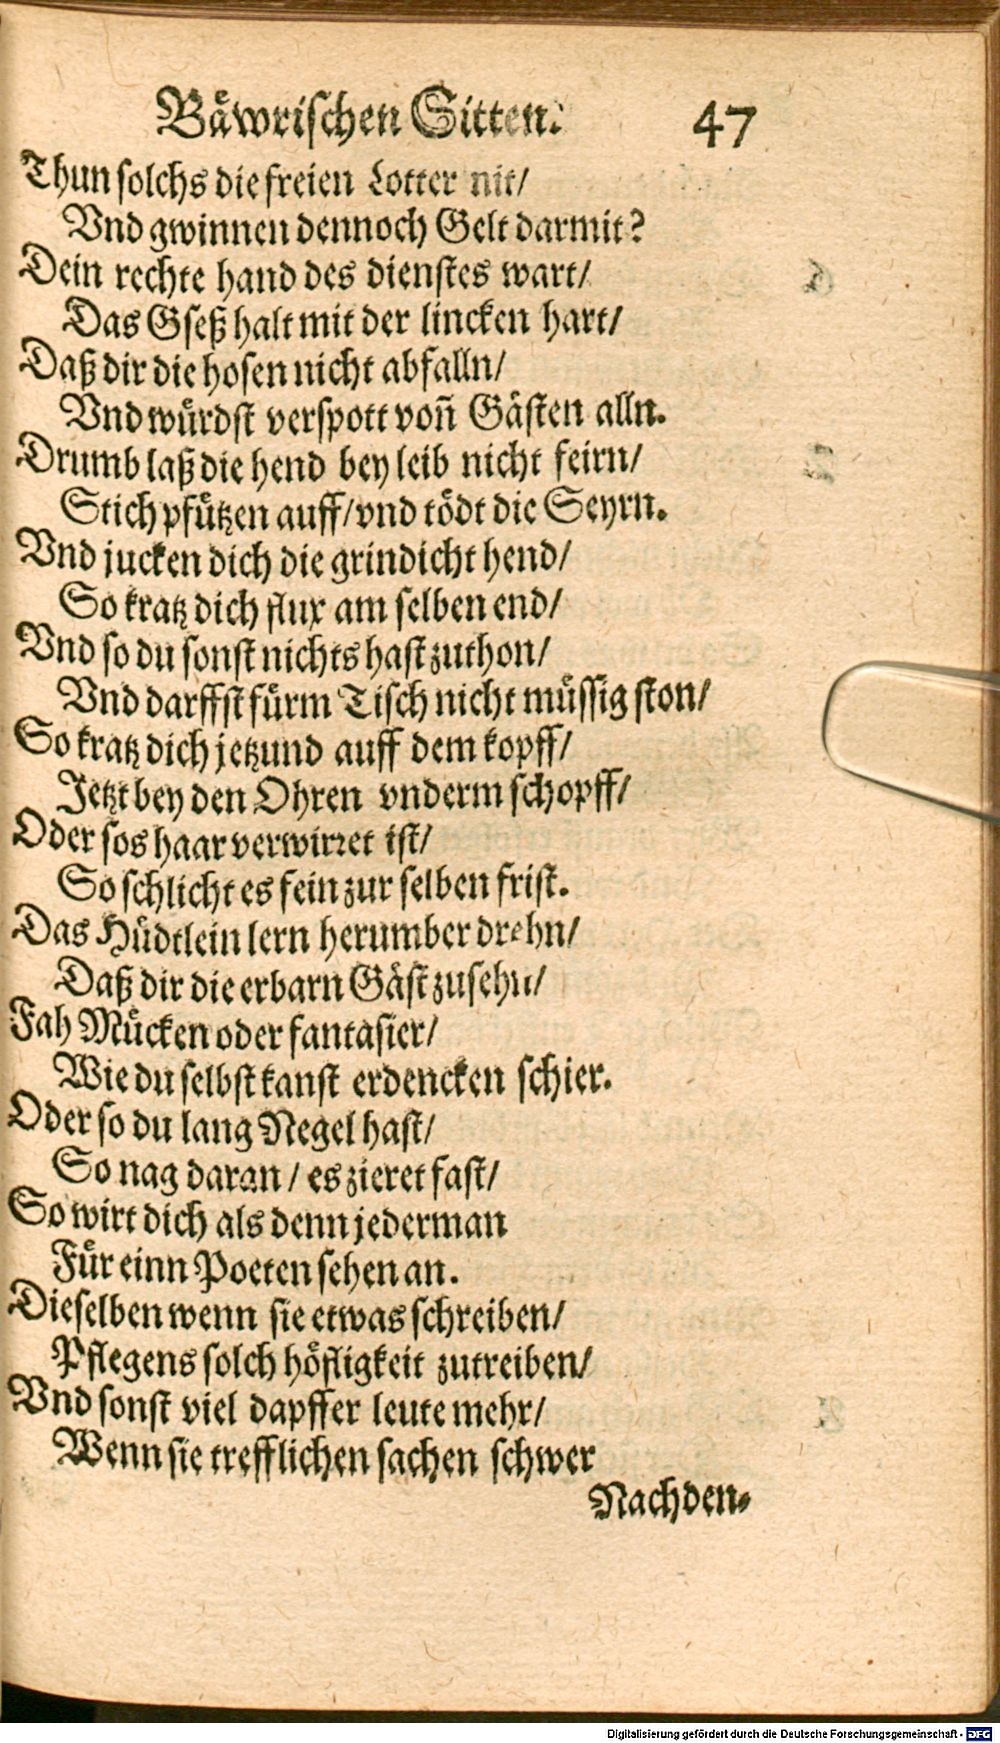 Bäwrischen Sitten. 47
Thun solchs die freien Lotter nit/
Vnd gwinnen dennoch Gelt darmit?
Dein rechte hand des dienstes wart/
Das Gseß halt mit der lincken hart/
Daß dir die hosen nicht abfalln/
Vnd würdst verspott von̄ Gästen alln.
Drumb laß die hend bey leib nicht feirn/
Stich pfützen auff/ vnd tödt die Seyrn.
Vnd jucken dich die grindicht hend/
So kratz dich flux am selben end/
Vnd so du sonst nichts hast zuthon/
Vnd darffst fürm Tisch nicht müssig ston/
So kratz dich jetzund auff dem kopff/
Jetzt bey den Ohren vnderm schopff/
Oder sos haar verwirret ist/
So schlicht es fein zur selben frist.
Das Hüdtlein lern herumber drehn/
Daß dir die erbarn Gäst zusehn/
Fah Mücken oder fantasier/
Wie du selbst kanst erdencken schier.
Oder so du lang Negel hast/
So nag daran/ es zieret fast/
So wirt dich als denn jederman
Für einn Poeten sehen an.
Dieselben wenn sie etwas schreiben/
Pflegens solch höfligkeit zutreiben/
Vnd sonst viel dapffer leute mehr/
Wenn sie trefflichen sachen schwer
Nachden-
Digitalisierung gefördert durch die Deutsche Forschungsgemeinschaft - DFG